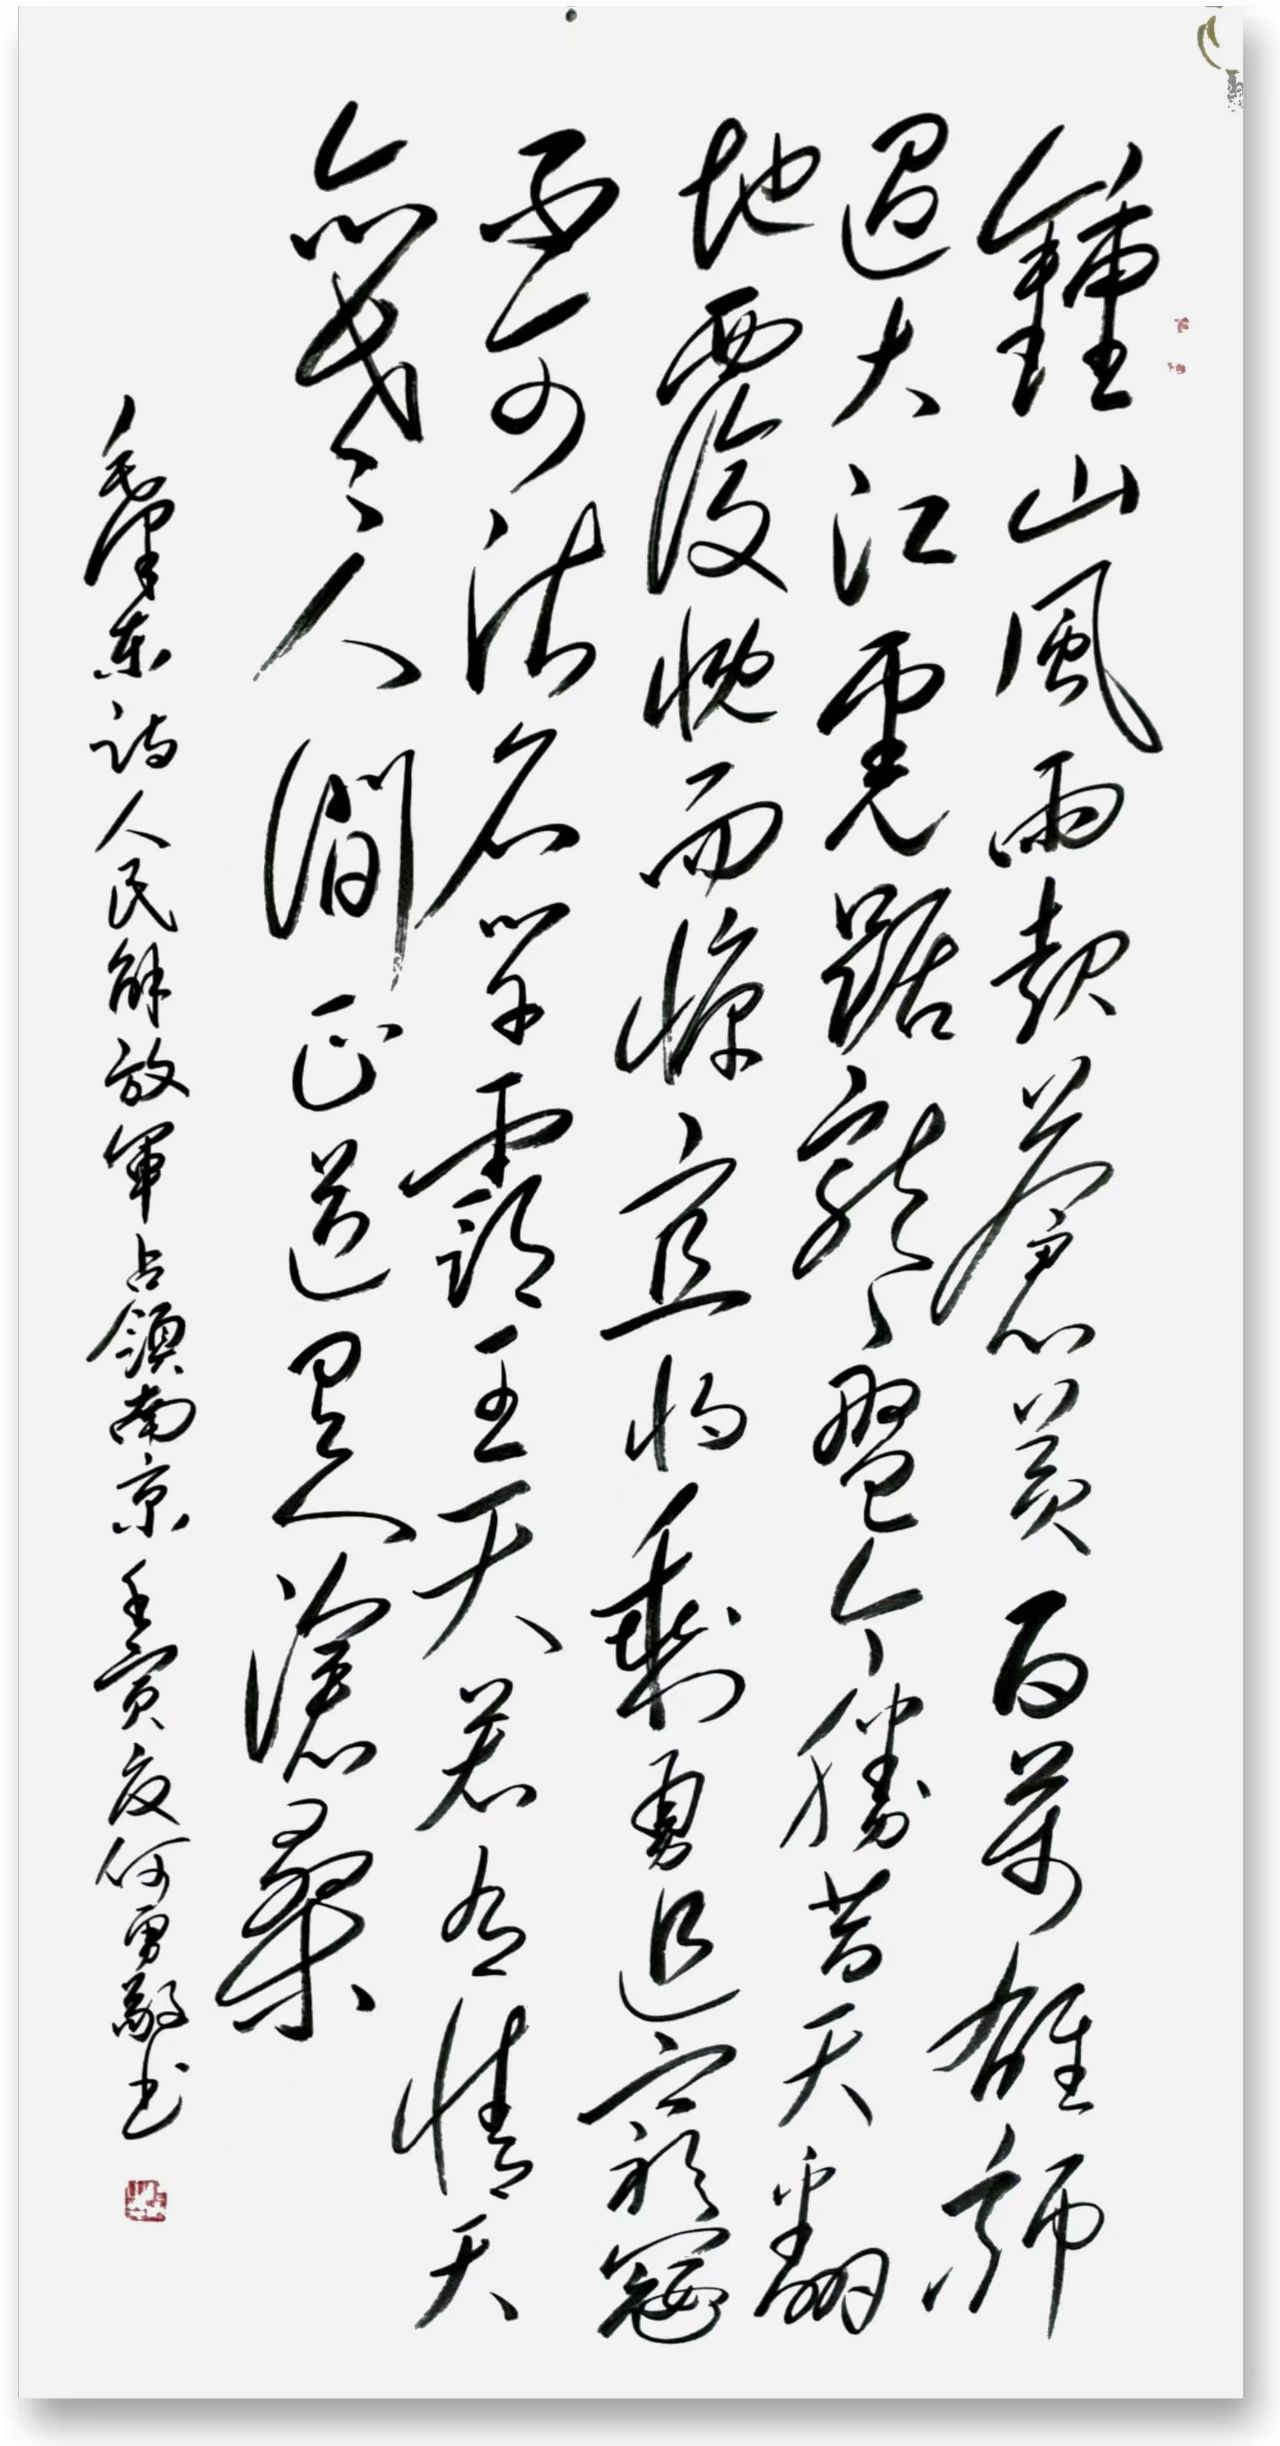 鍾山風雨起蒼黃百萬雄師
過大江虎踞龍盤今勝昔天翻
地覆慨而慷宜將剩勇追窮寇
不可沽名學霸王天若有情天
亦老人間正道是滄桑
毛澤東詩人民解放軍占領南京壬寅夏何勇敬書